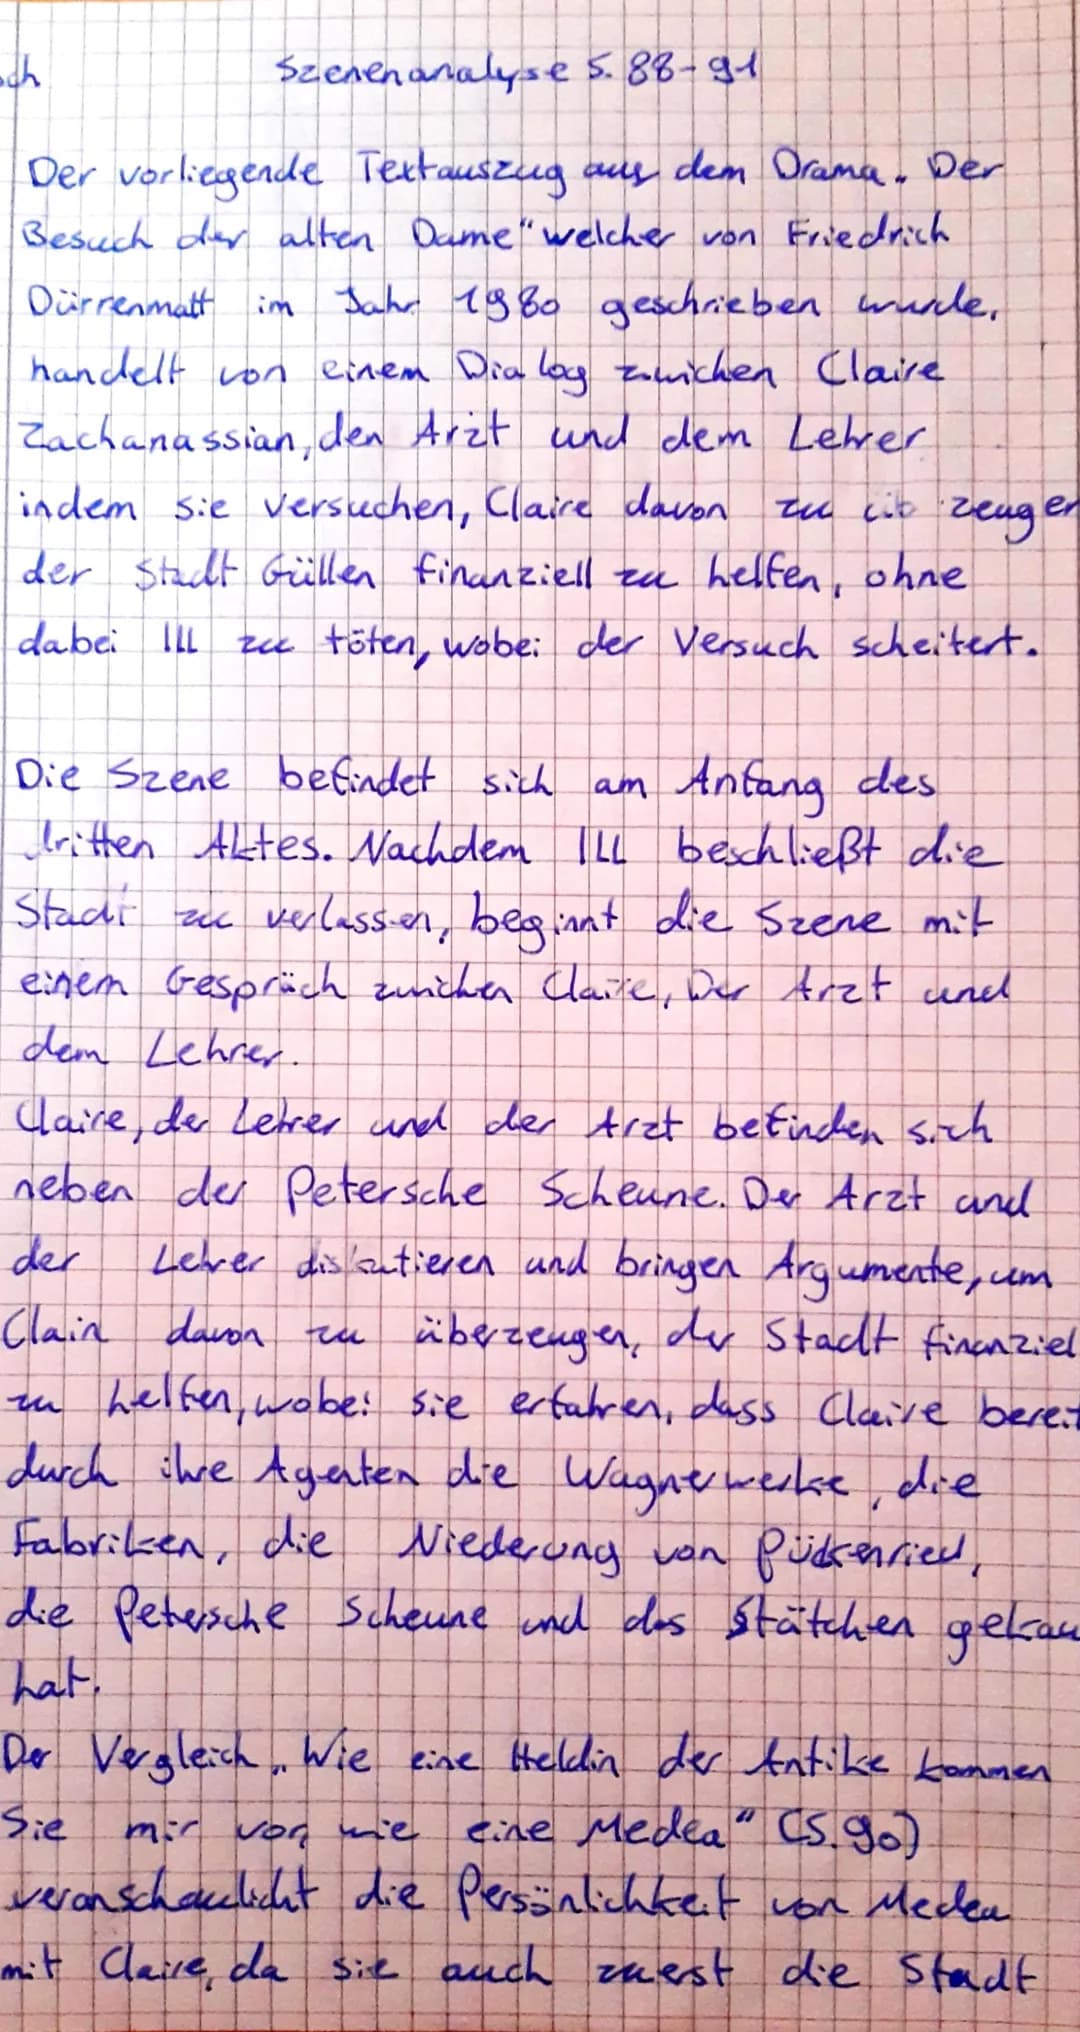 ch Szenenanalyse S. 88-91
Der vorliegende Textauszug aus dem Drama „Der
Besuch der alten Dame" welcher von Friedrich
Dürrenmatt im Jahr 1980 geschrieben wurde,
handelt von einem Dialog zwichen Claire
Zachanassian, den Arzt und dem Lehrer
indem sie versuchen, Claire davon zu überzeugen
der Stadt Güllen finanziell zu helfen, ohne
dabei Ill zu töten, wobei der Versuch scheitert.
Die Szene befindet sich am Anfang des
dritten Aktes. Nachdem Ill beschließt die
Stadt zu verlassen, beginnt die Szene mit
einem Gespräch zwichen Claire, Der Arzt und
dem Lehrer.
Claire, der Lehrer und der Arzt befinden sich
neben der Petersche Scheune. Der Arzt und
der Lehrer diskutieren und bringen Argumente, um
Clair davon zu überzeugen, der Stadt finanziel
zu helfen, wobei sie erfahren, dass Claire bereit
durch ihre Agenten die Wagnerwerke, die
Fabriken, die Niederung von Pückenried,
die Petersche Scheune und das Stätchen gekau
hat.
Der Vergleich „Wie eine Heldin der Antike kommen
Sie mir vor, wie eine Medea" (S. 90)
veranschaulicht die Persönlichkeit von Medea
mit Claire, da sie auch zuerst die Stadt